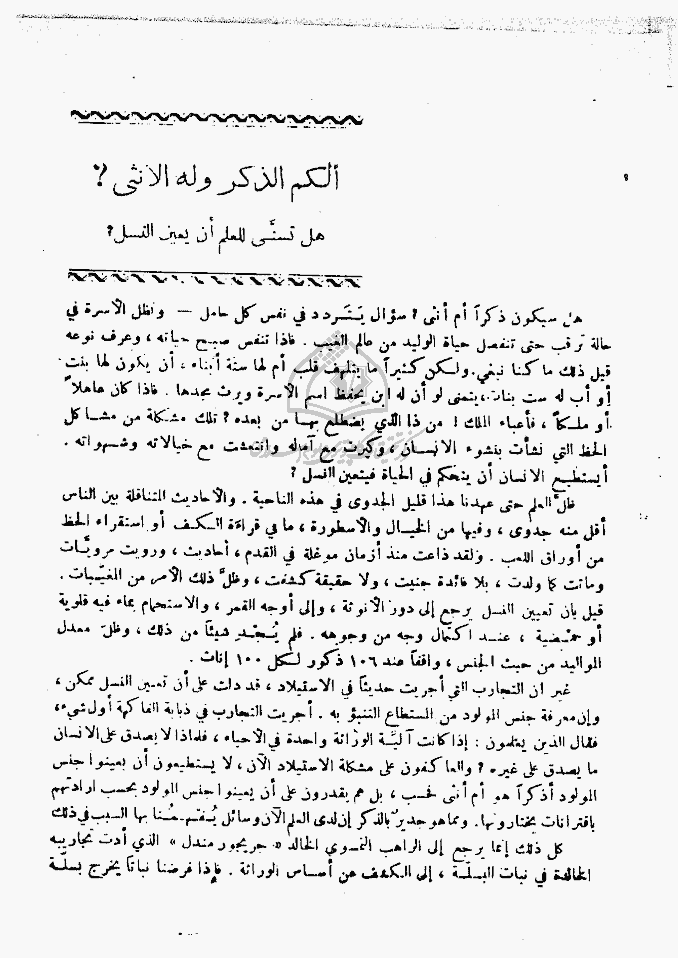 ألكم الذكر وله الانثى ?
هل تسنَّى للعلم أن يعين النسل ?
هل سيكون ذكراً أم أنثى ? سؤال يتردد في نفس كل حامل — وتظل الأسرة في
حالة ترقب حتى تنفصل حياة الوليد من عالم الغيب . فاذا تنفس صبح حياته ، وعرف نوعه
قيل ذلك ما كنا نبغي . ولكن كثيراً ما يتلهف قلب أم لها ستة أبناء ، أن يكون لها بنت
أو أب له ست بنات ، يتمنى لو أن له ابن يحفظ اسم الأسرة ويرث مجدها . فاذا كان عاهلاً
أو ملكاً ، فأعباء الملك ! من ذا الذي يضطلع بها من بعده ? تلك مشكلة من مشاكل
الحظ التي نشأت بنشوء الانسان ، وكبرت مع آماله وانتعشت مع خيالاته وشهواته .
أيستطيع الانسان أن يتحكم في الحياة فيتعين النسل ?
ظلَّ العلم حتى عهدنا هذا قليل الجدوى في هذه الناحية . والأحاديث المتناقلة بين الناس
أقل منه جدوى ، وفيها من الخيال والأسطورة ، ما في قراءة الكف أو استقراء الحظ
من أوراق اللعب . ولقد ذاعت منذ أزمان موغلة في القدم ، أحاديث ، ورويت مرويَّات
وماتت كما ولدت ، بلا فائدة جنيت ، ولا حقيقة كشفت ، وظلَّ ذلك الأمر من المغيّبات .
قيل بان تعيين النسل يرجع إلى دور الأنوثة ، وإلى أوجه القمر ، والاستحمام بماء فيه قلوية
أو حمضية ، عند اكتمال وجه من وجوهه . فلم يُجدِ شيئاً من ذلك ، وظلّ معدل
المواليد من حيث الجنس ، واقفاً عند ١٠٦ ذكور لكل ١٠٠ إناث .
غير ان التجارب التي أجريت حديثاً في الاستيلاد ، قد دلت على أن تعيين النسل ممكن ،
وإن معرفة جنس المولود من المستطاع التنبؤ به . أجريت التجارب في ذبابة الفاكهة أول شيء ،
فقال الذين يعلمون : إذا كانت آلية الوراثة واحدة في الأحياء ، فلماذا لا يصدق على الانسان
ما يصدق على غيره ? والعاكفون على مشكلة الاستيلاد الآن ، لا يستطيعون أن يعينوا جنس
المولود أذكراً هو أم أنثى فحسب ، بل هم يقدرون على أن يعينوا جنس المولود بحسب ارادتهم
باقترانات يختارونها . ومما هو جديرٌ بالذكر إن لدى العلم الآن وسائل يُفسّر لنا بها السبب في ذلك
كل ذلك إنما يرجع إلى الراهب النمسوي الخالد « جريجور مندل » الذي أدت تجاريبه
الخالدة في نبات البسلَّة ، إلى الكشف عن أساس الوراثة . فإذا فرضنا نباتاً يخرج بسلَّة